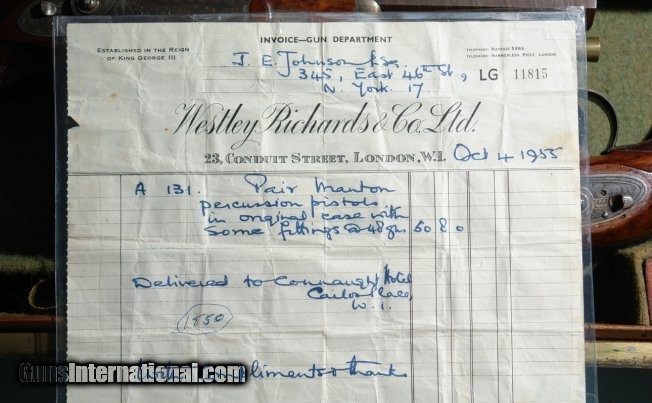 INVOICE—GUN DEPARTMENT
ESTABLISHED IN THE REIGN
OF KING GEORGE III
J. E. Johnson Esq.
345, East 46th St.,
N. York. 17.
TELEPHONE, MAYFAIR 5066
TELEGRAMS, HAMMERLESS, PICCY, LONDON
LG 11815
Westley Richards & Co. Ltd.
23, CONDUIT STREET, LONDON, W.1.
Oct 4 1955
A 131. Pair Manton
percussion pistols
in original case with
some fittings @ 48gns 50 8 0
Delivered to Connaught Hotel
Carlos Place,
W. 1.
1850
compliments & thanks
GunsInternational.com